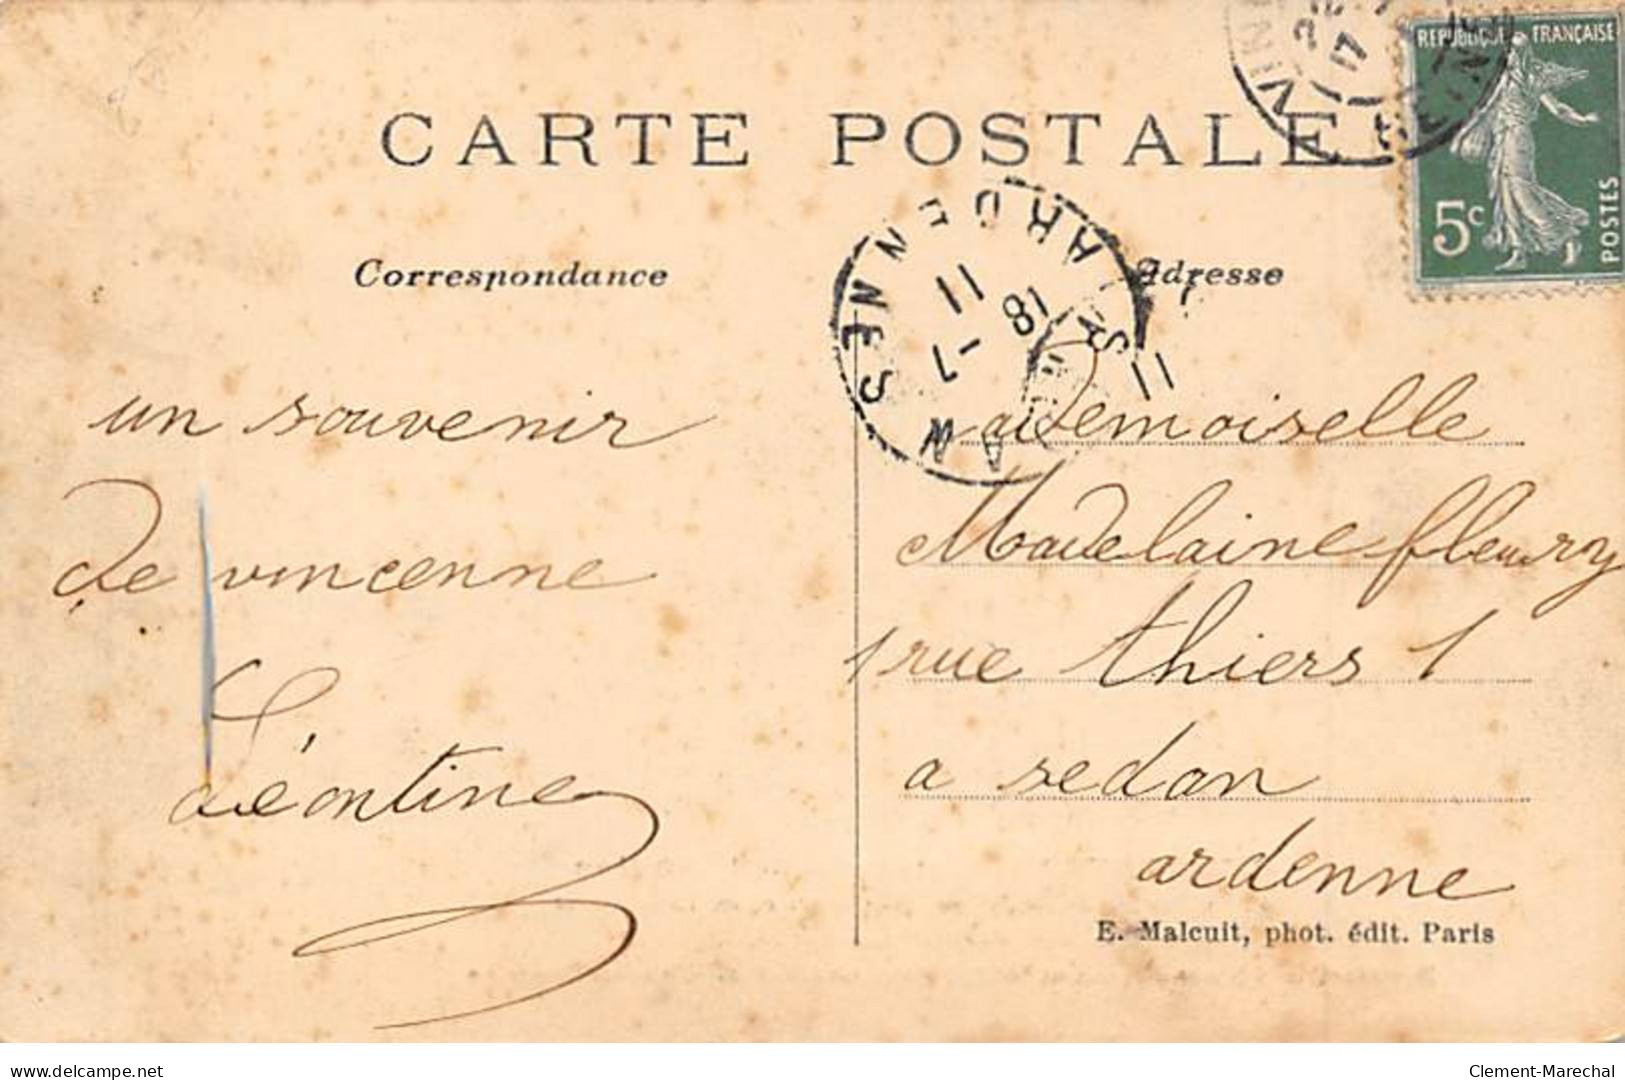 CARTE POSTALE
REPUBLIQUE FRANÇAISE
5c
POSTES
Correspondance
Adresse
ARDENNES
11
18 -7
11
17
un souvenir
de vincenne
Léontine
Mademoiselle
Madelaine fleury
1 rue thiers 1
a sedan
ardenne
E. Malcuit, phot. édit. Paris
delcampe.net
Clement-Marechal